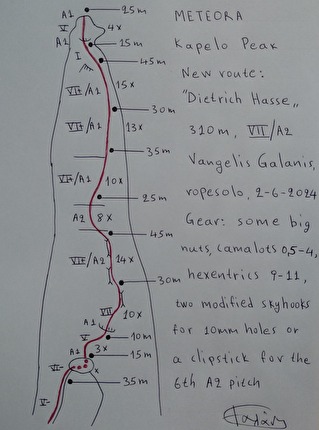 A1 25m
V 4x
A1 15m
I 45m
VII+/A1 15x
30m
VII+/A1 13x
35m
VI+/A1 10x
25m
A2 8x
45m
VII+/A2 14x
30m
VII 10x
A1
V 10m
3x
A1 15m
x
VI- 35m
VI-
METEORA
Kapelo Peak
New route:
"Dietrich Hasse„
310m, VII/A2
Vangelis Galanis,
ropesolo, 2-6-2024
Gear: some big
nuts, camalots 0,5-4,
hexentrics 9-11,
two modified skyhooks
for 10mm holes or
a clipstick for the
6th A2 pitch